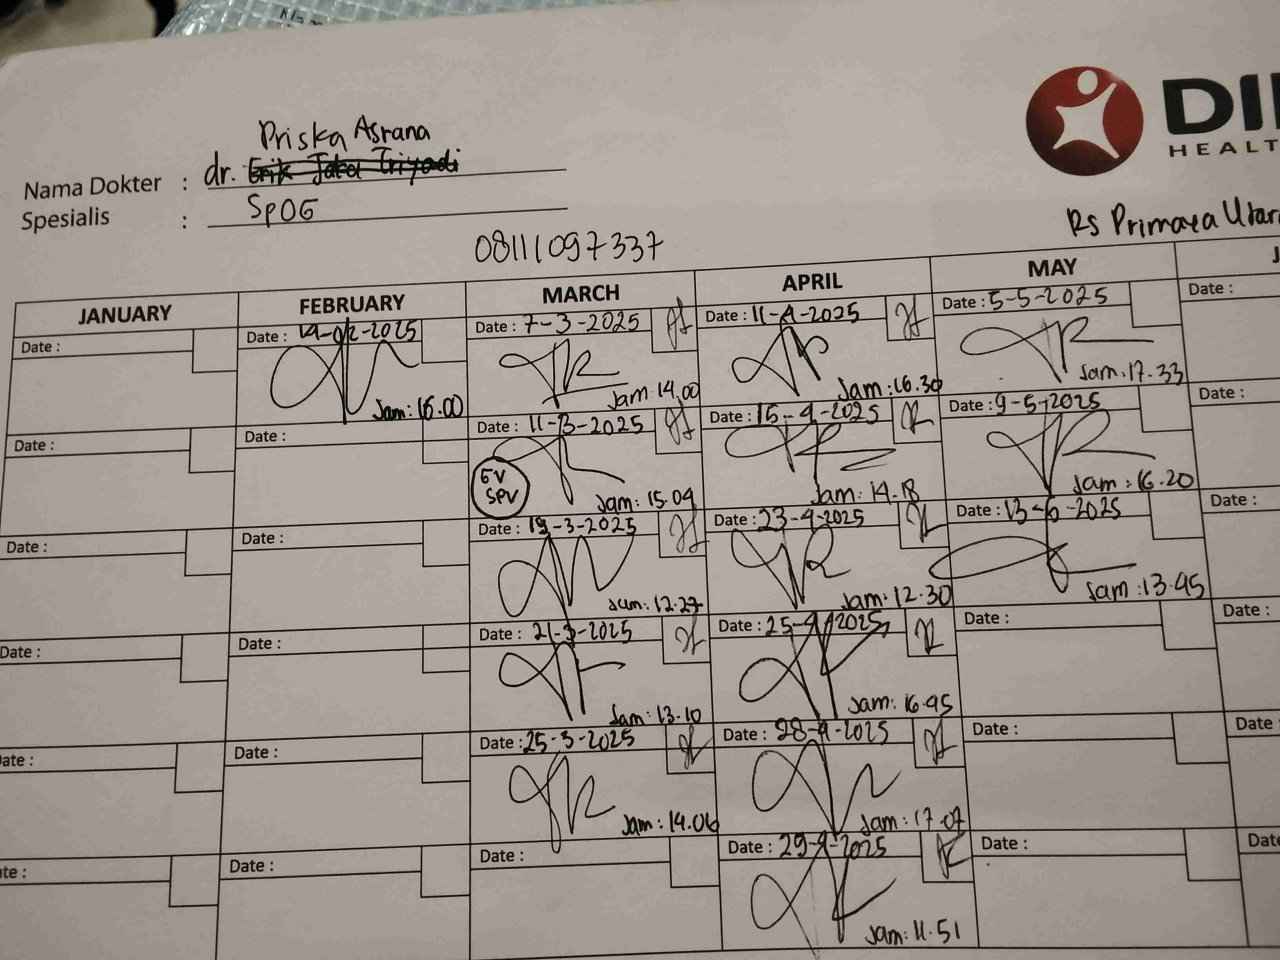 Priska Asrana
Nama Dokter : dr. Erik Jaka Triyadi
Spesialis : SpOG
DI
HEALT
RS Primaya Utar
08111097337
JANUARY FEBRUARY MARCH APRIL MAY J
Date : Date : 19-02-2025 Date : 7-3-2025 Date : 11-4-2025 Date : 5-5-2025 Date :
Jam: 16.00 Jam: 14.00 Jam: 16.30 Jam: 17.33
Date : Date : Date : 11-3-2025 Date : 15-4-2025 Date : 9-5-2025 Date :
SPV
Jam: 15.04 Jam: 14.18 Jam: 16.20
Date : Date : Date : 19-3-2025 Date : 23-4-2025 Date : 13-5-2025 Date :
Jam: 12.27 Jam: 12.30 Jam: 13.45
Date : Date : Date : 21-3-2025 Date : 25-4-2025 Date : Date :
Jam: 13.10 Jam: 16.45
ate : Date : Date : 25-3-2025 Date : 28-4-2025 Date : Date
Jam: 14.06 Jam: 17.07
te : Date : Date : Date : 29-4-2025 Date : Dat
Jam: 11.51